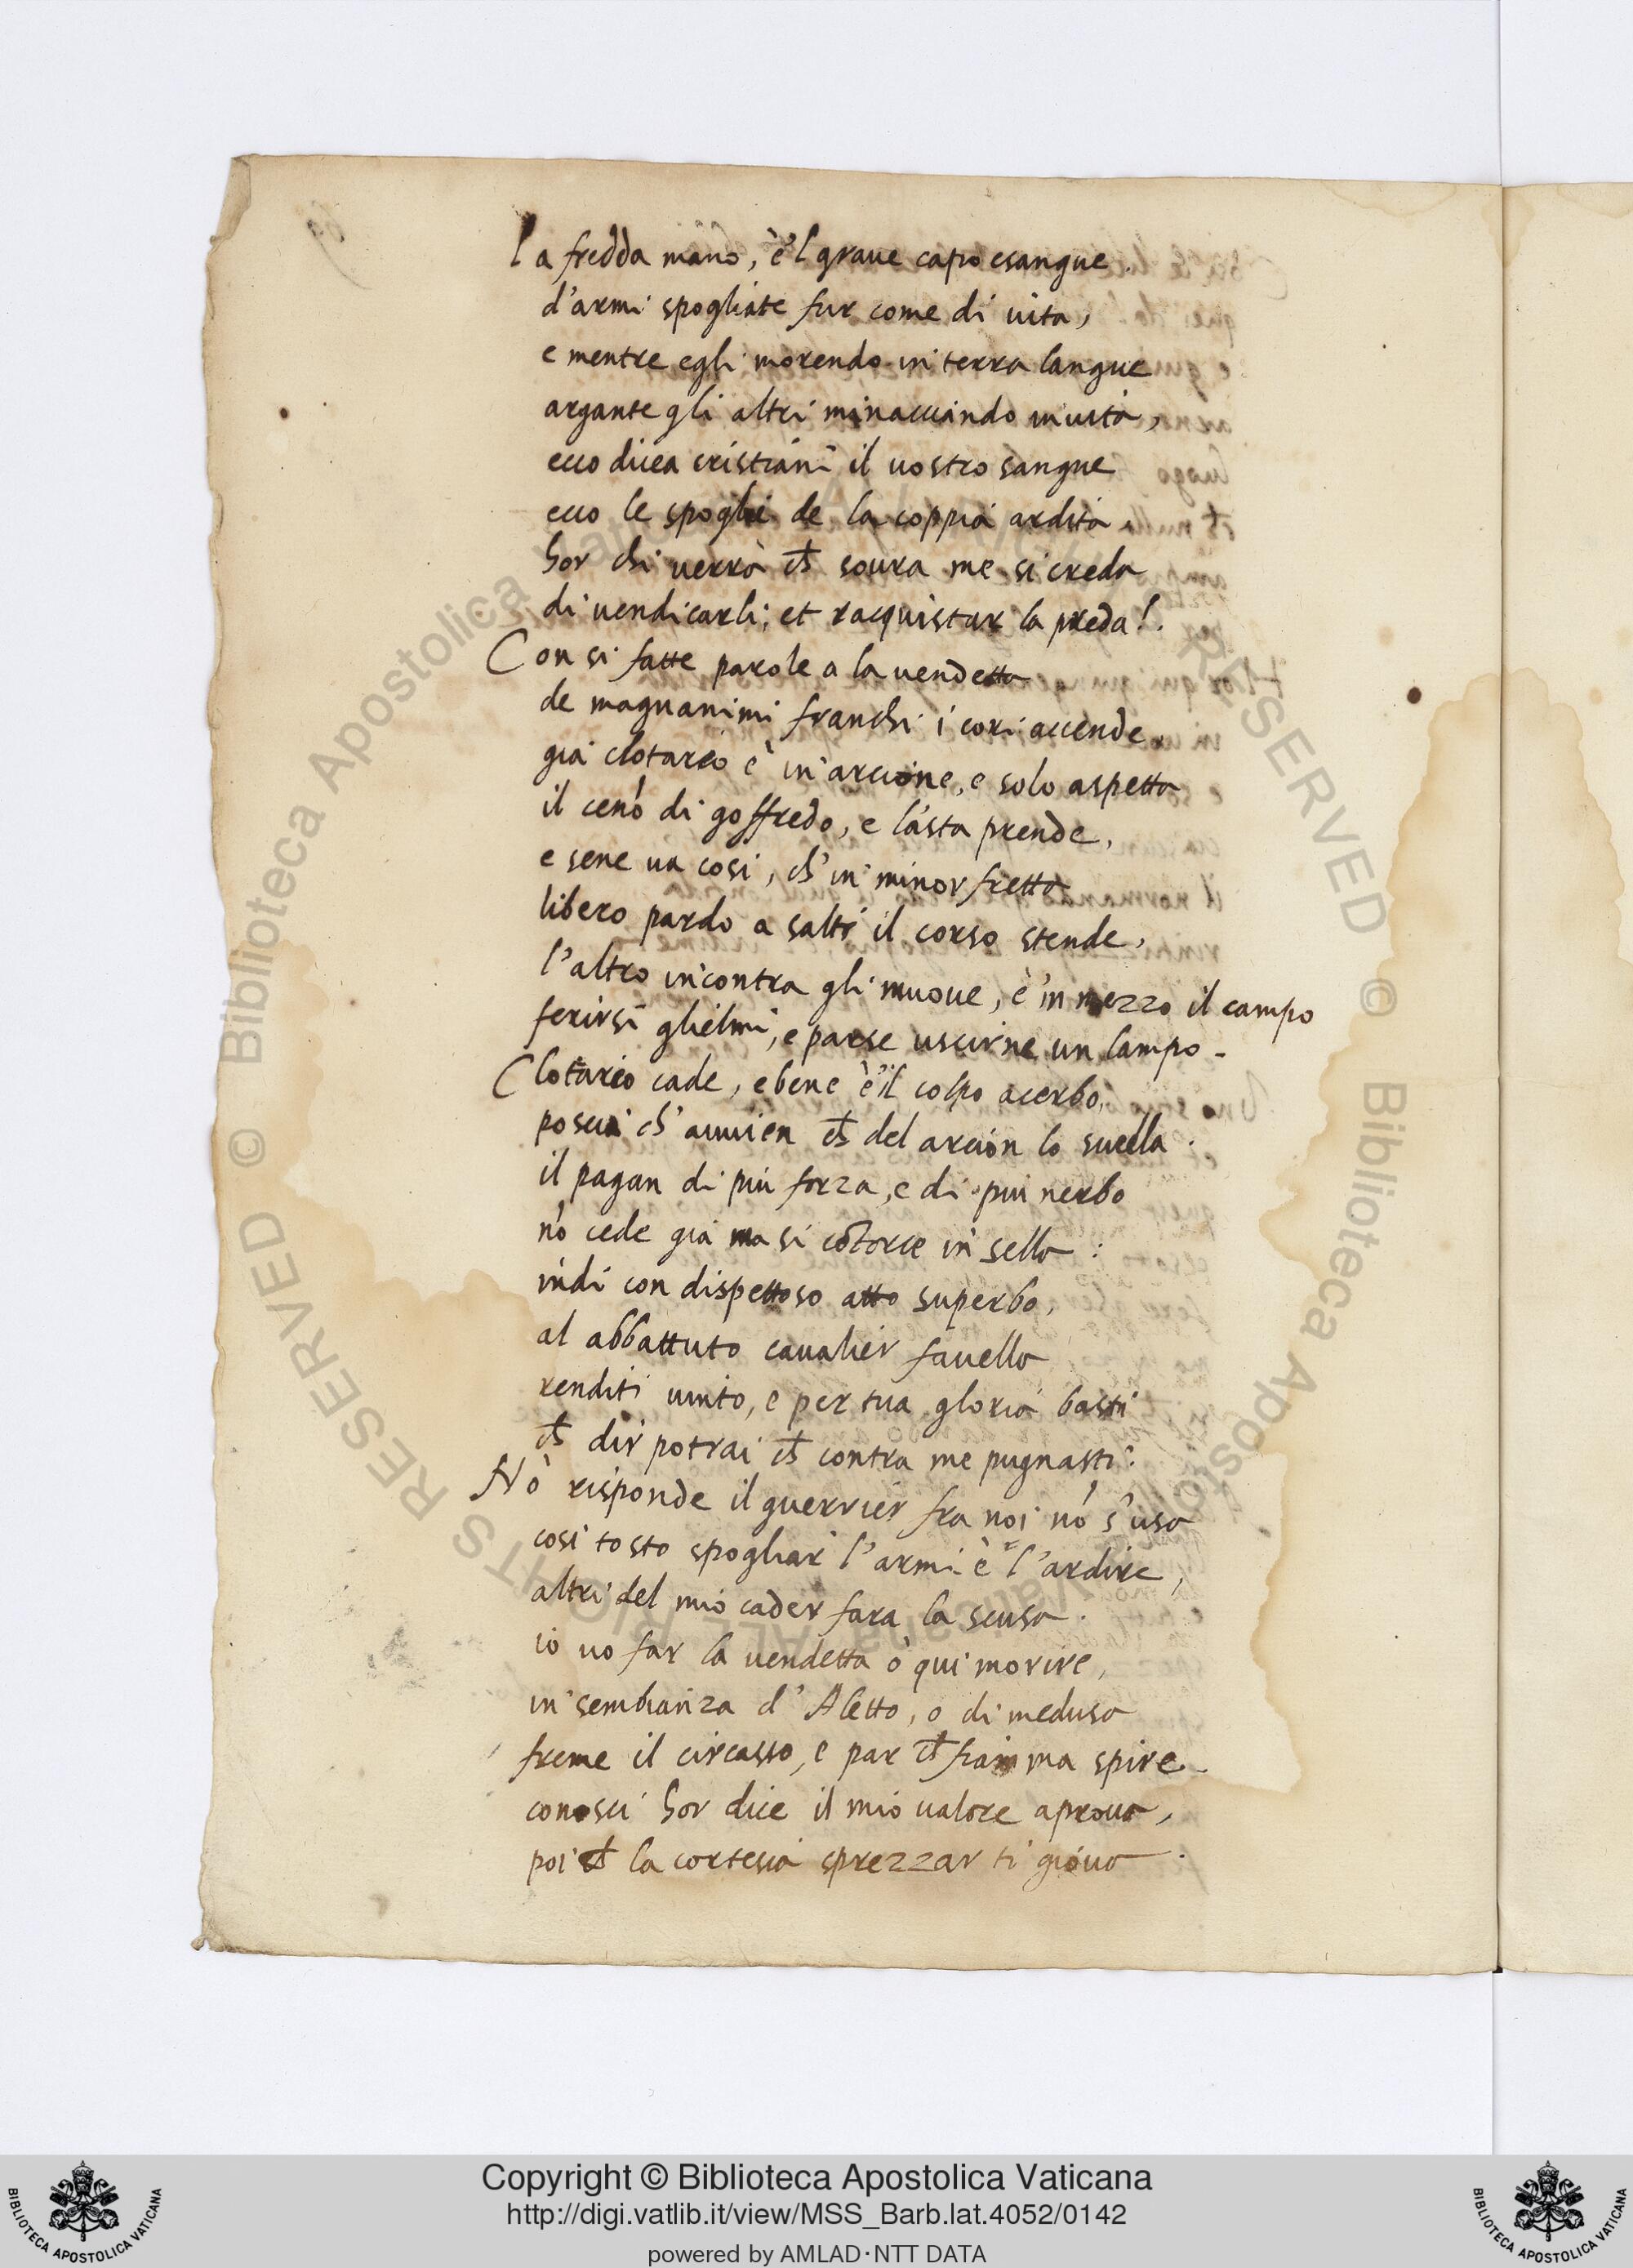 la fredda mano, è'l graue capo esangue.
d'armi spogliate fur come di uita,
e mentre egli morendo in terra langue
argante gli altri minacciando inuita,
ecco dicea cristiani il uostro sangue
ecco le spoglie de la coppia ardita.
hor chi uerrà ch̄ soura me si creda
di uendicarli; et racquistar la preda!.
Con si fatte parole a la uendetta
de magnanimi franchi i cori accende.
già clotareo è in arcione, e solo aspetta
il cenó di goffredo, e l'asta prende,
e sene ua cosi, ch' in minor fretta
libero pardo a salti il corso stende,
l'altro incontra gli muoue, è in mezzo il campo
ferirsi glielmi, e parse uscirne un lampo.
Clotareo cade, e bene è il colpo acerbo,
poscia ch' auuien ch̄ del arcion lo suella.
il pagan di più forza, e di più nerbo
nō cede già ma si cōtorce in sella:
indi con dispettoso atto superbo,
al abbattuto caualier fauella
renditi uinto, e per tua gloria basti
ch̄ dir potrai ch̄ contra me pugnasti:
Nō risponde il guerrier fra noi nō s'usa
cosi tosto spogliar l'armi è l'ardire,
altri del mio cader fara la scusa.
io uo far la uendetta ò qui morire,
in sembianza d'Aletto, o di medusa
freme il circasso, e par ch̄ fiamma spire.
conosci hor dice il mio ualore aproua,
poi ch̄ la cortesia sprezzar ti gioua.
Copyright © Biblioteca Apostolica Vaticana
http://digi.vatlib.it/view/MSS_Barb.lat.4052/0142
powered by AMLAD·NTT DATA
BIBLIOTECA APOSTOLICA VATICANA
BIBLIOTECA APOSTOLICA VATICANA